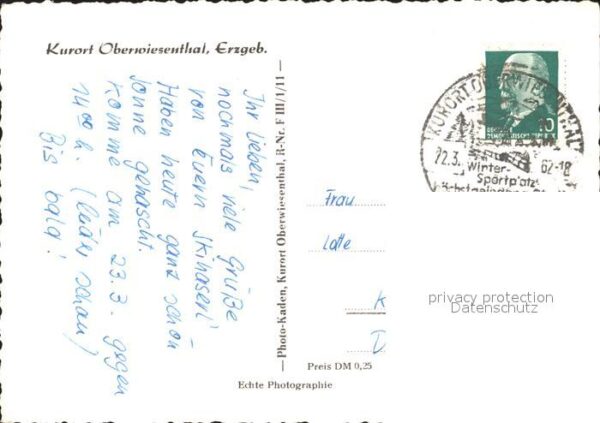 Kurort Oberwiesenthal, Erzgeb.
Ihr Lieben,
nochmals viele Grüße
von Euern Skihaserl -
Haben heute ganz schön
Sonne gehascht.
Komme am 23.3. gegen
14ooh. (leider schon)
Bis bald!
Photo-Kaden, Kurort Oberwiesenthal, R-Nr. F III/1/11
Frau
Lotte
K
D
Preis DM 0,25
Echte Photographie
10
KURORT OBERWIESENTHAL
22.3. 62-18
Winter-
Sportplatz
privacy protection
Datenschutz